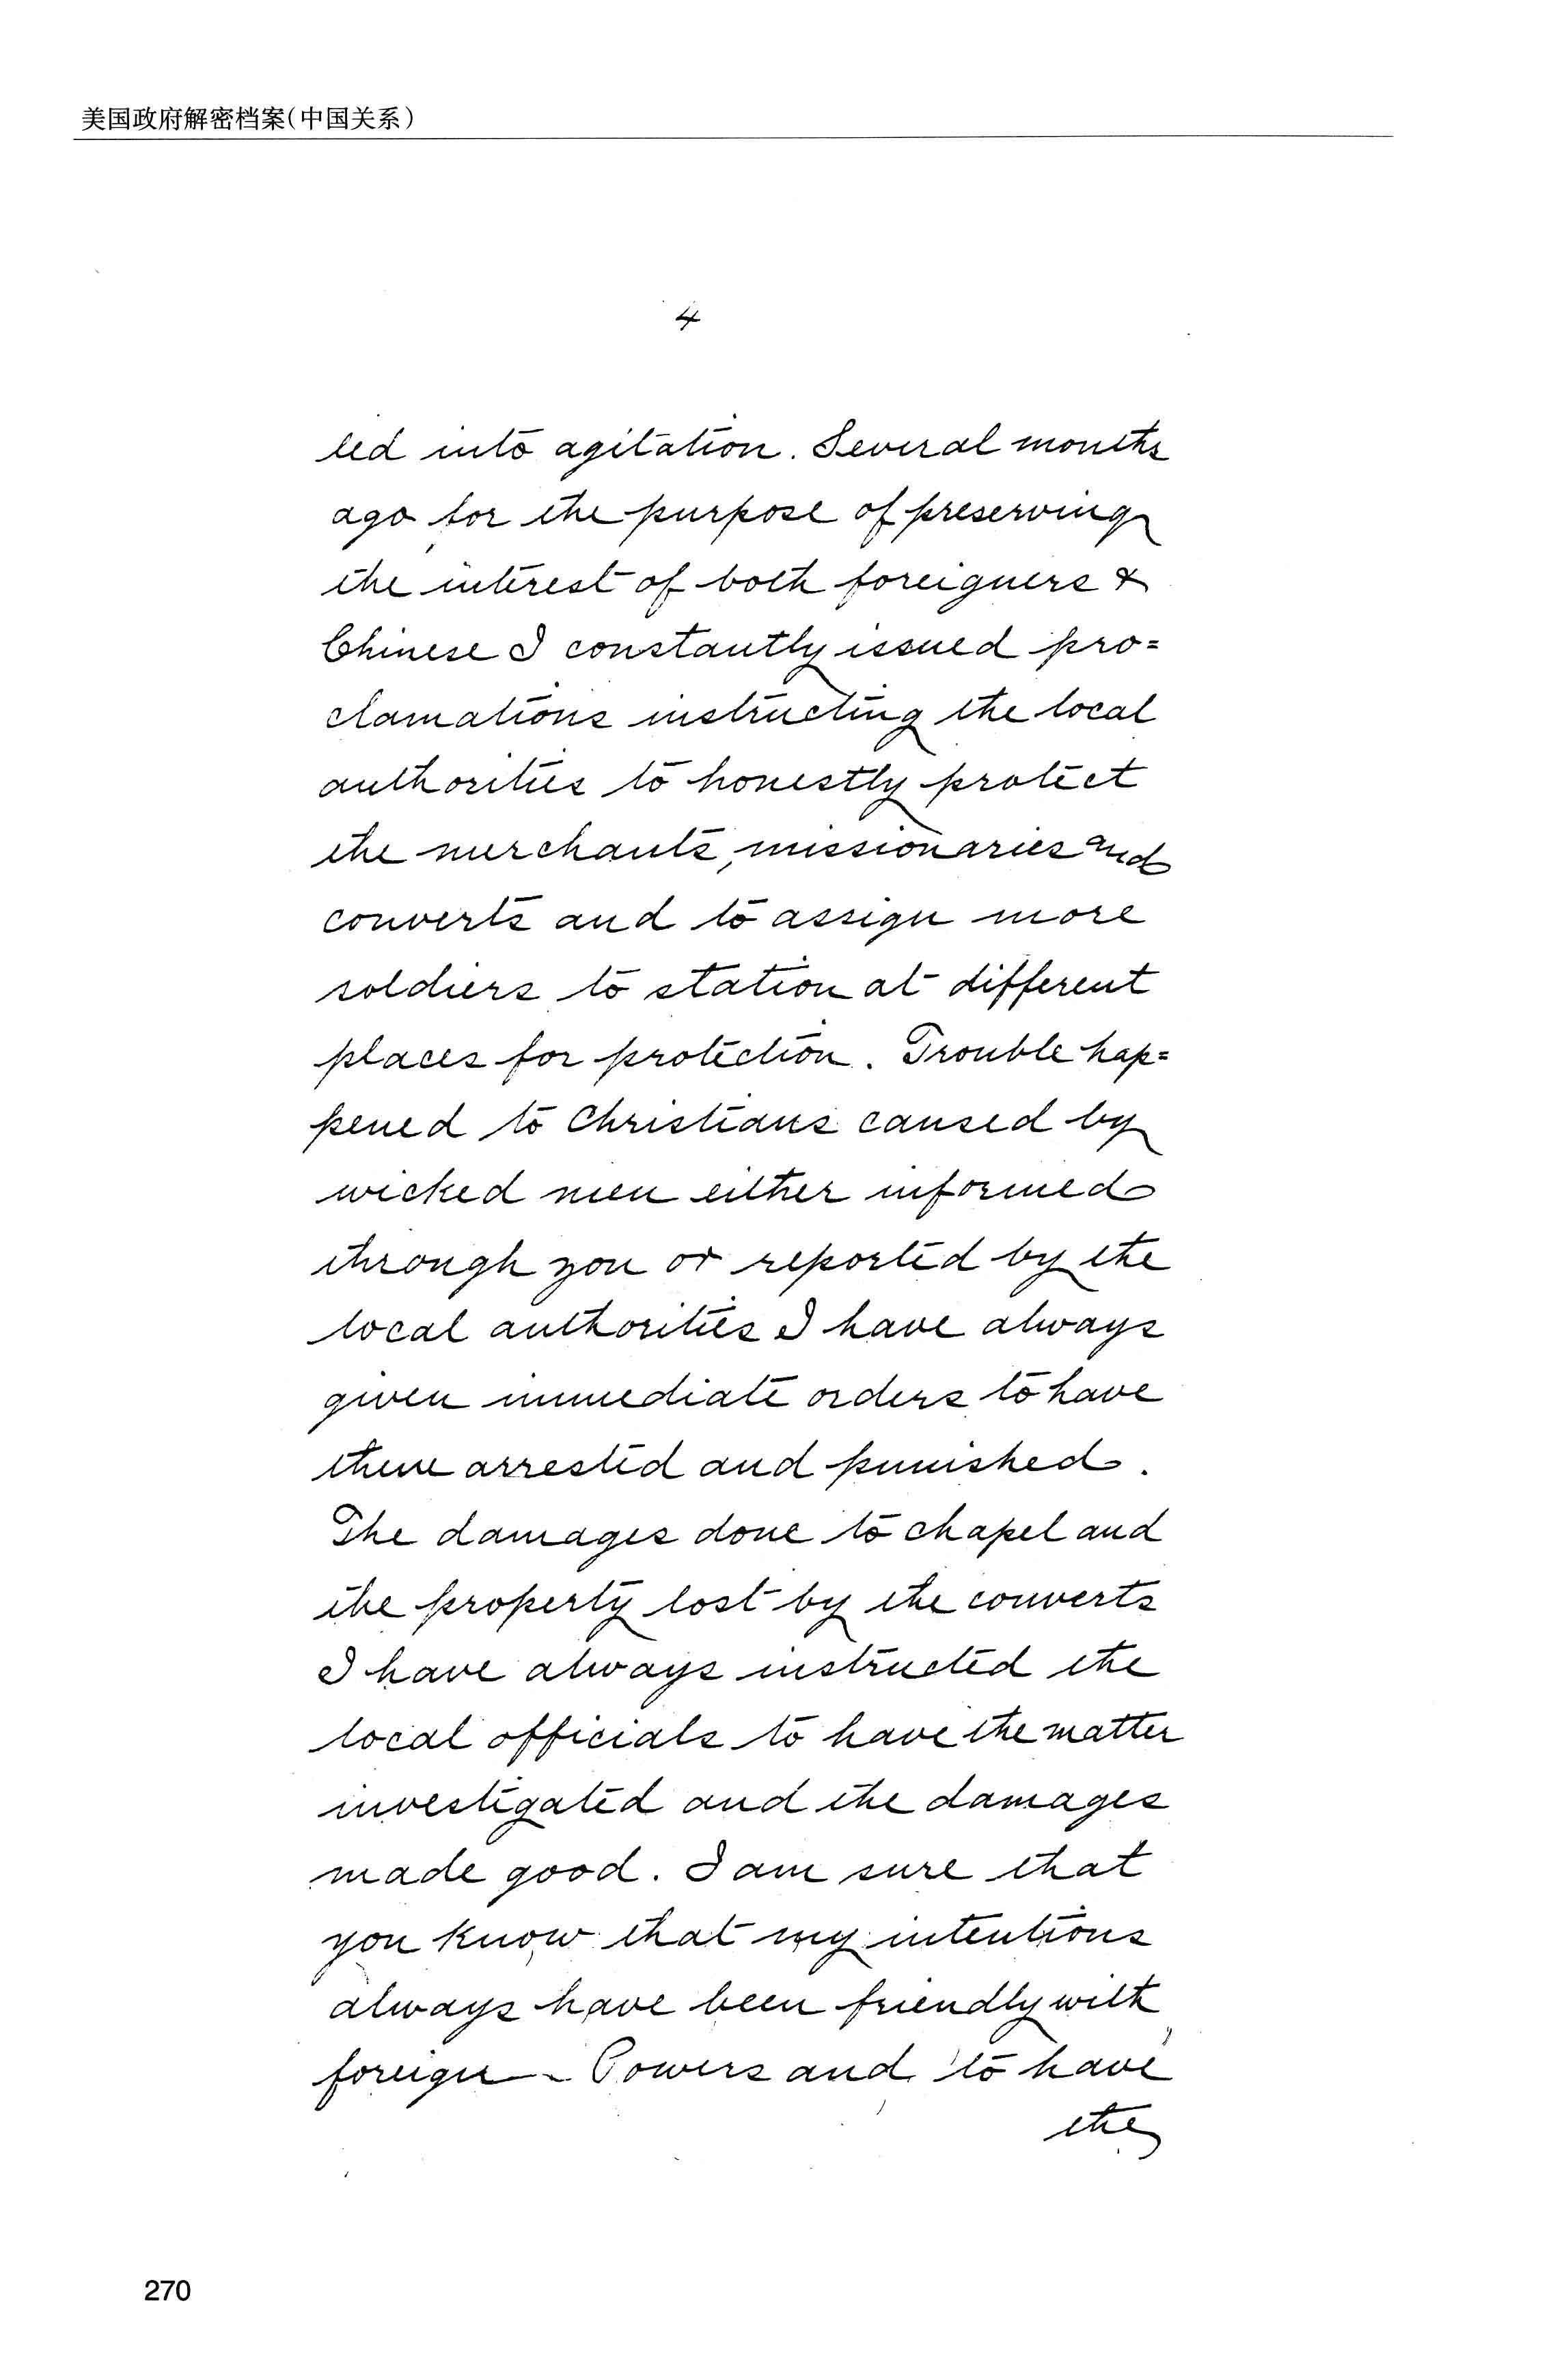 美国政府解密档案(中国关系)
4
led into agitation. Several months
ago for the purpose of preserving
the interest of both foreigners &
Chinese I constantly issued pro=
clamations instructing the local
authorities to honestly protect
the merchants, missionaries and
converts and to assign more
soldiers to station at different
places for protection. Trouble hap=
pened to Christians caused by
wicked men either informed
through you or reported by the
local authorities I have always
given immediate orders to have
them arrested and punished.
The damages done to chapel and
the property lost by the converts
I have always instructed the
local officials to have the matter
investigated and the damages
made good. I am sure that
you know that my intentions
always have been friendly with
foreign - Powers and to have
the
270